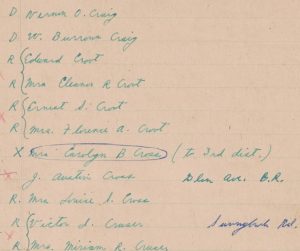 D Vernon O. Craig
D W. Burrows Craig
R Edward Croot
R Mrs Eleanor R Croot
R Ernest S. Croot
R Mrs. Florence A. Croot
X Mrs Carolyn B Cross (to 3rd dist.)
X J. Austin Cross Glen Ave. B.R.
R. Mrs Louise S. Cross
R Victor S. Cruser Sunnybrook Rd.
X R Mrs. Miriam R. Cruser